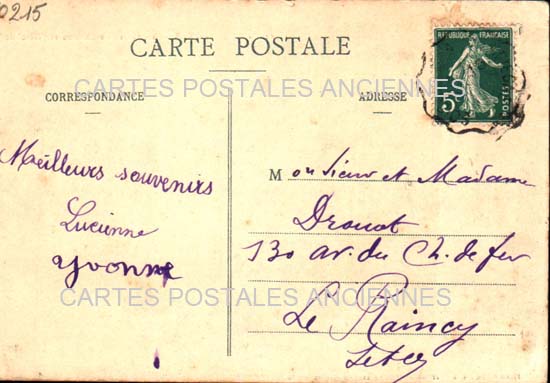 0215
CARTE POSTALE
CARTES POSTALES ANCIENNES
CORRESPONDANCE
ADRESSE
REPUBLIQUE FRANÇAISE
5c
POSTES
Meilleurs souvenirs
Lucienne
Yvonne
Monsieur et Madame
Drouot
130 av. du Ch. de fer
CARTES POSTALES ANCIENNES
Le Raincy